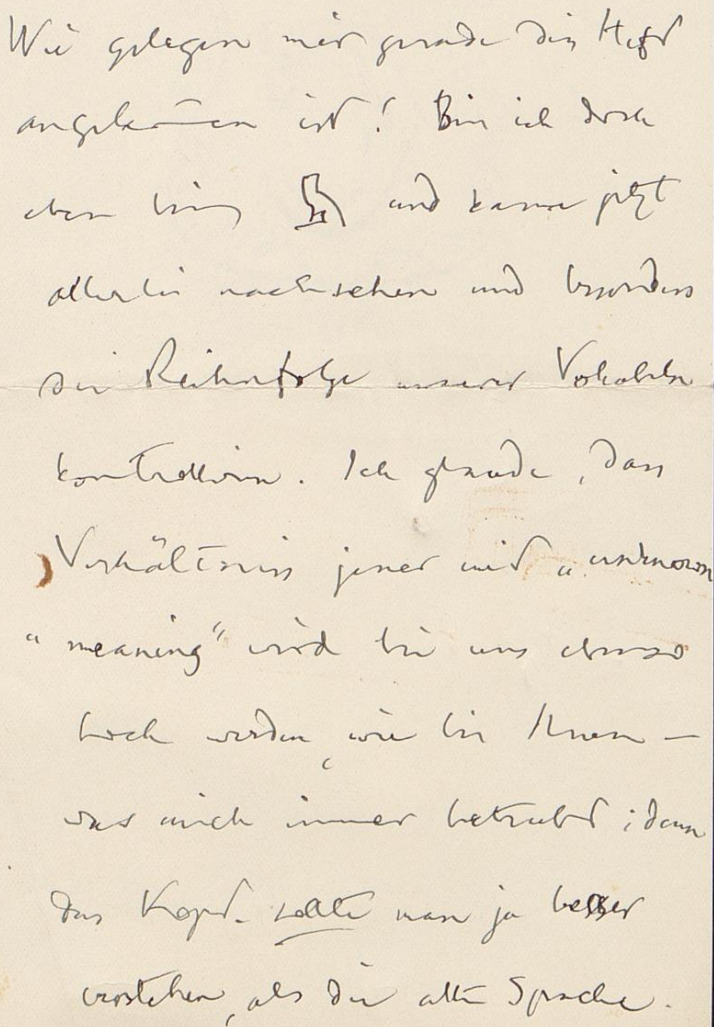 Wie gelegen mir gerade dies Heft
angekom̅en ist! Bin ich doch
eben beim und kann jetzt
allerlei nachsehen und besonders
die Reihenfolge unserer Vokabeln
kontrolliren. Ich glaube, das
Verhältniss jener mit „unknown
“meaning“ wird bei uns ebenso
hoch werden, wie bei Ihnen —
was mich immer betrübt; denn
das Kopt. sollte man ja besser
verstehen, als die alte Sprache.